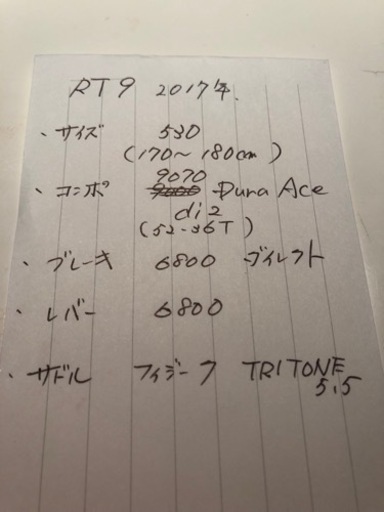 RT9 2017年.
・サイズ 530
(170～180cm)
・コンポ 9070 Dura Ace
di2
(52-36T)
・ブレーキ 6800 ダイレクト
・レバー 6800
・サドル フィジーク TRITONE
5.5